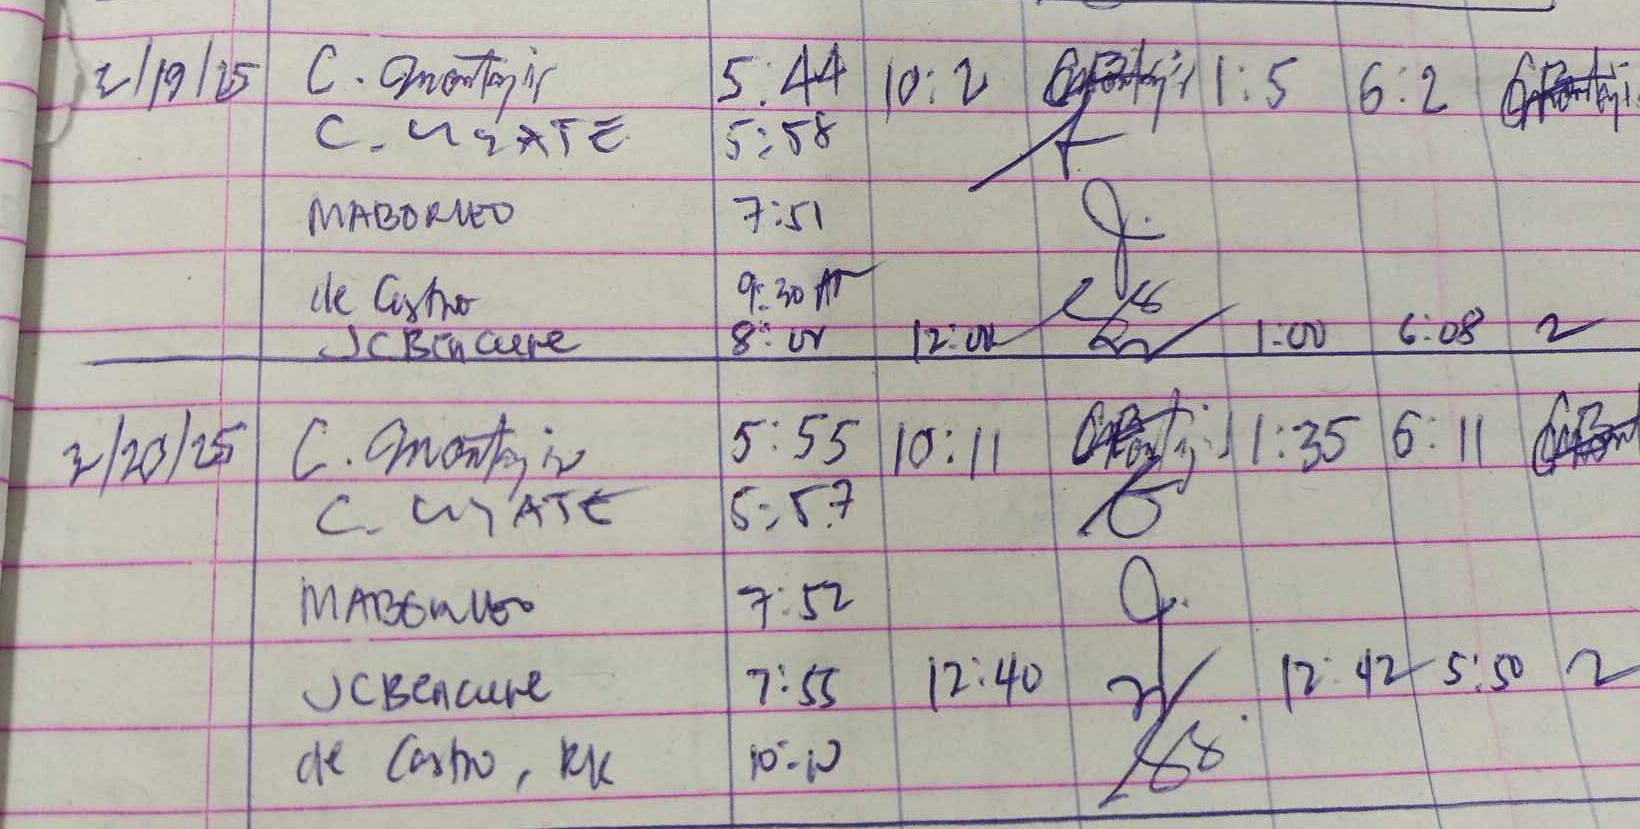 2/19/25 C. Montejir 5:44 10:2 1:5 6:2
C. UYATE 5:58
MABORNEO 7:51
de Castro 9:30 AM
JCBencure 8:00 12:00 1:00 6:08
2/20/25 C. Montejir 5:55 10:11 1:35 6:11
C. UYATE 5:57
MABORNEO 7:52
JCBencure 7:55 12:40 12:42 5:50
de Castro, RK 10:10